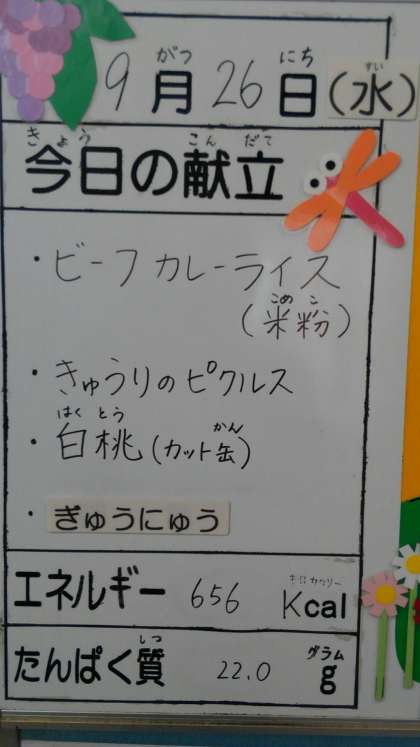 がつ にち すい
9月26日(水)
きょう こんだて
今日の献立
・ビーフカレーライス
こめ こ
(米粉)
・きゅうりのピクルス
はく とう かん
・白桃(カット缶)
・ぎゅうにゅう
キロカロリー
エネルギー 656 Kcal
しつ グラム
たんぱく質 22.0 g